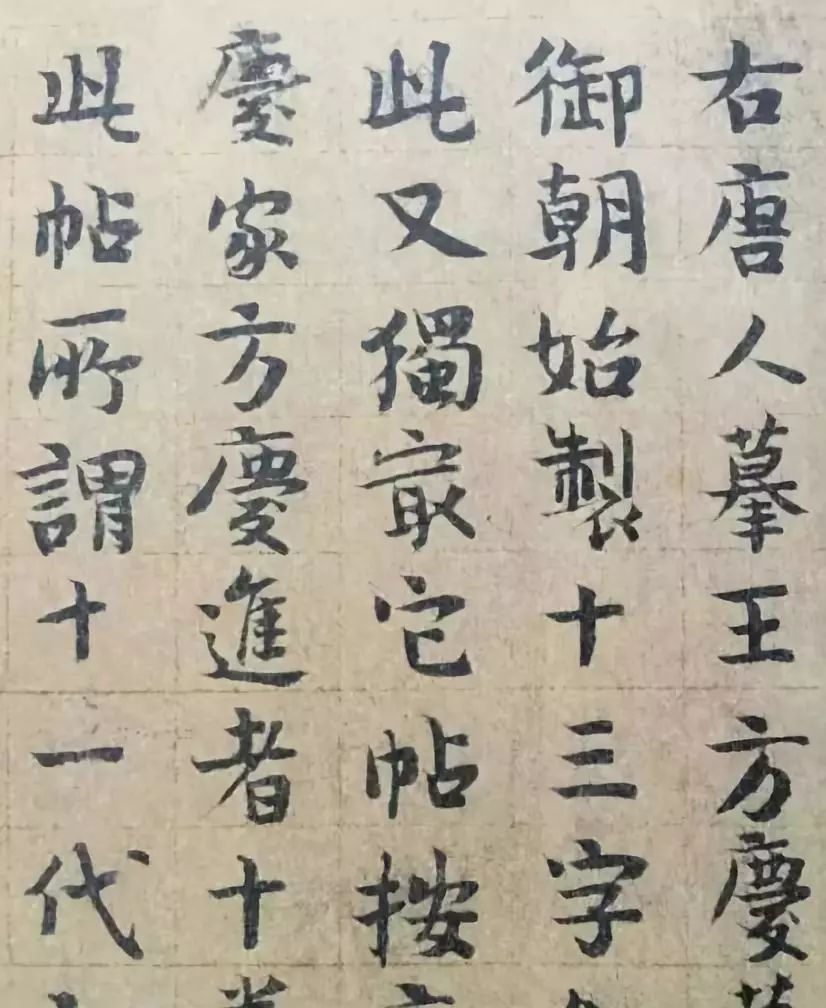 右唐人摹王方慶
御朝始製十三字
此又獨冣它帖按
慶家方慶進者十
此帖所謂十一代